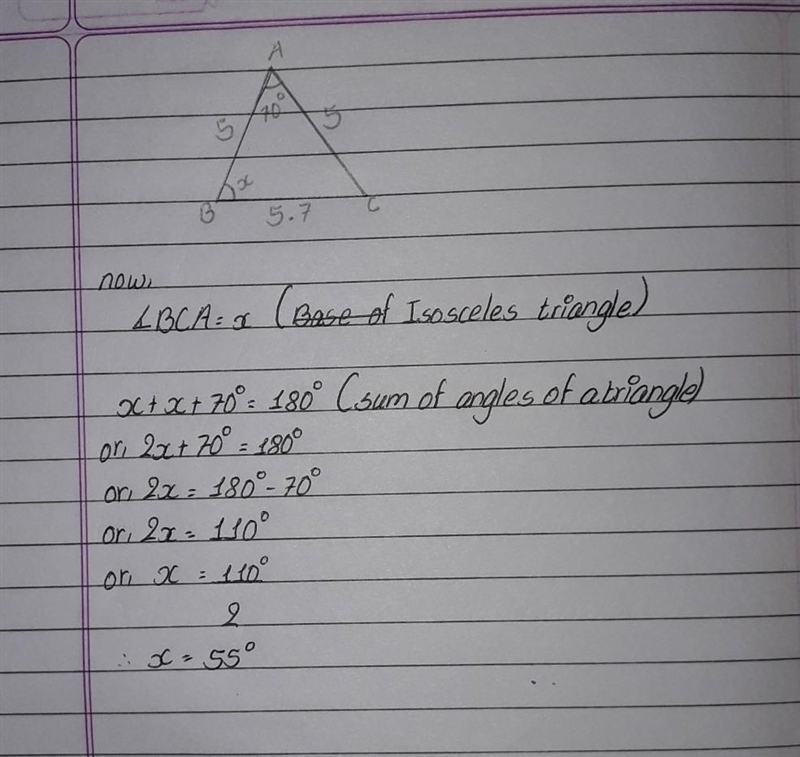 A
70°
5
5
x
B
5.7
C
now,
∠BCA = x (Base of Isosceles triangle)
x + x + 70° = 180° (sum of angles of a triangle)
or, 2x + 70° = 180°
or, 2x = 180° - 70°
or, 2x = 110°
or, x = 110°
2
∴ x = 55°